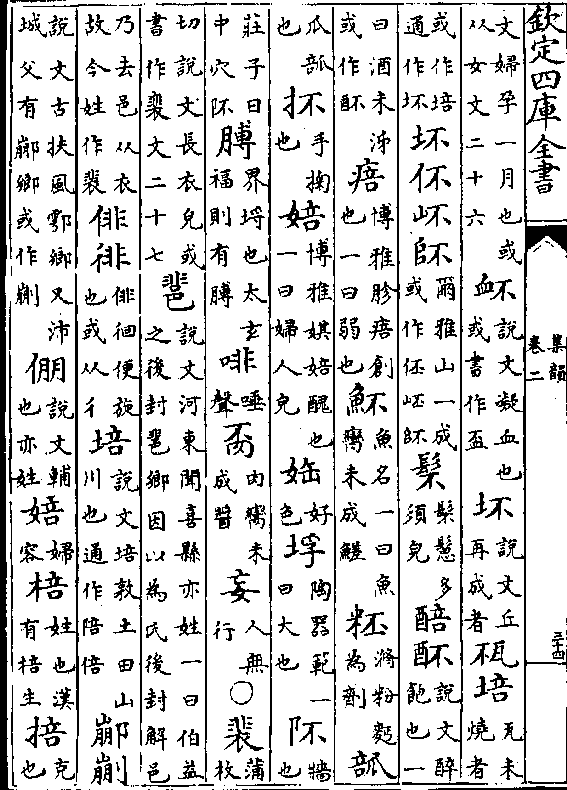 欽定四庫全書
集韻
卷二
三十四
文婦孕一月也或从女文二十六 衃說文凝血也或書作衁 坏說文丘再成者 㼎培瓦未燒者
或作培通作坏 坯伾岯爾雅山一成或作伾岯 髬髬髵多須皃 醅酻說文醉飽也一
曰酒未泲或作酻 痦博雅胗痦創也一曰弱也 魾魚名一曰魚臠未成鱧 滫粉麪為劑 瓿
瓜瓿也 抔手掬也 婄博雅娸婄醜也一曰婦人皃 好色 垺陶器範一曰大也 阫牆也
莊子曰中穴阫 膊界埒也太玄福則有膊 啡唾聲 肉臠未成醬 人無行 ○裴蒲枚
切說文長衣皃或書作裵文二十七 說文河東聞喜縣亦姓一曰伯益之後封鄉因以為氏後封解邑
乃去邑从衣故今姓作裴 俳徘俳徊便旋也或从彳 培說文培敦土田山川也通作陪倍 䣙
說文古扶風鄠鄉又沛城父有䣙鄉或作 倗說文輔也亦姓 婄婦容 棓姓也漢有棓生 掊克也